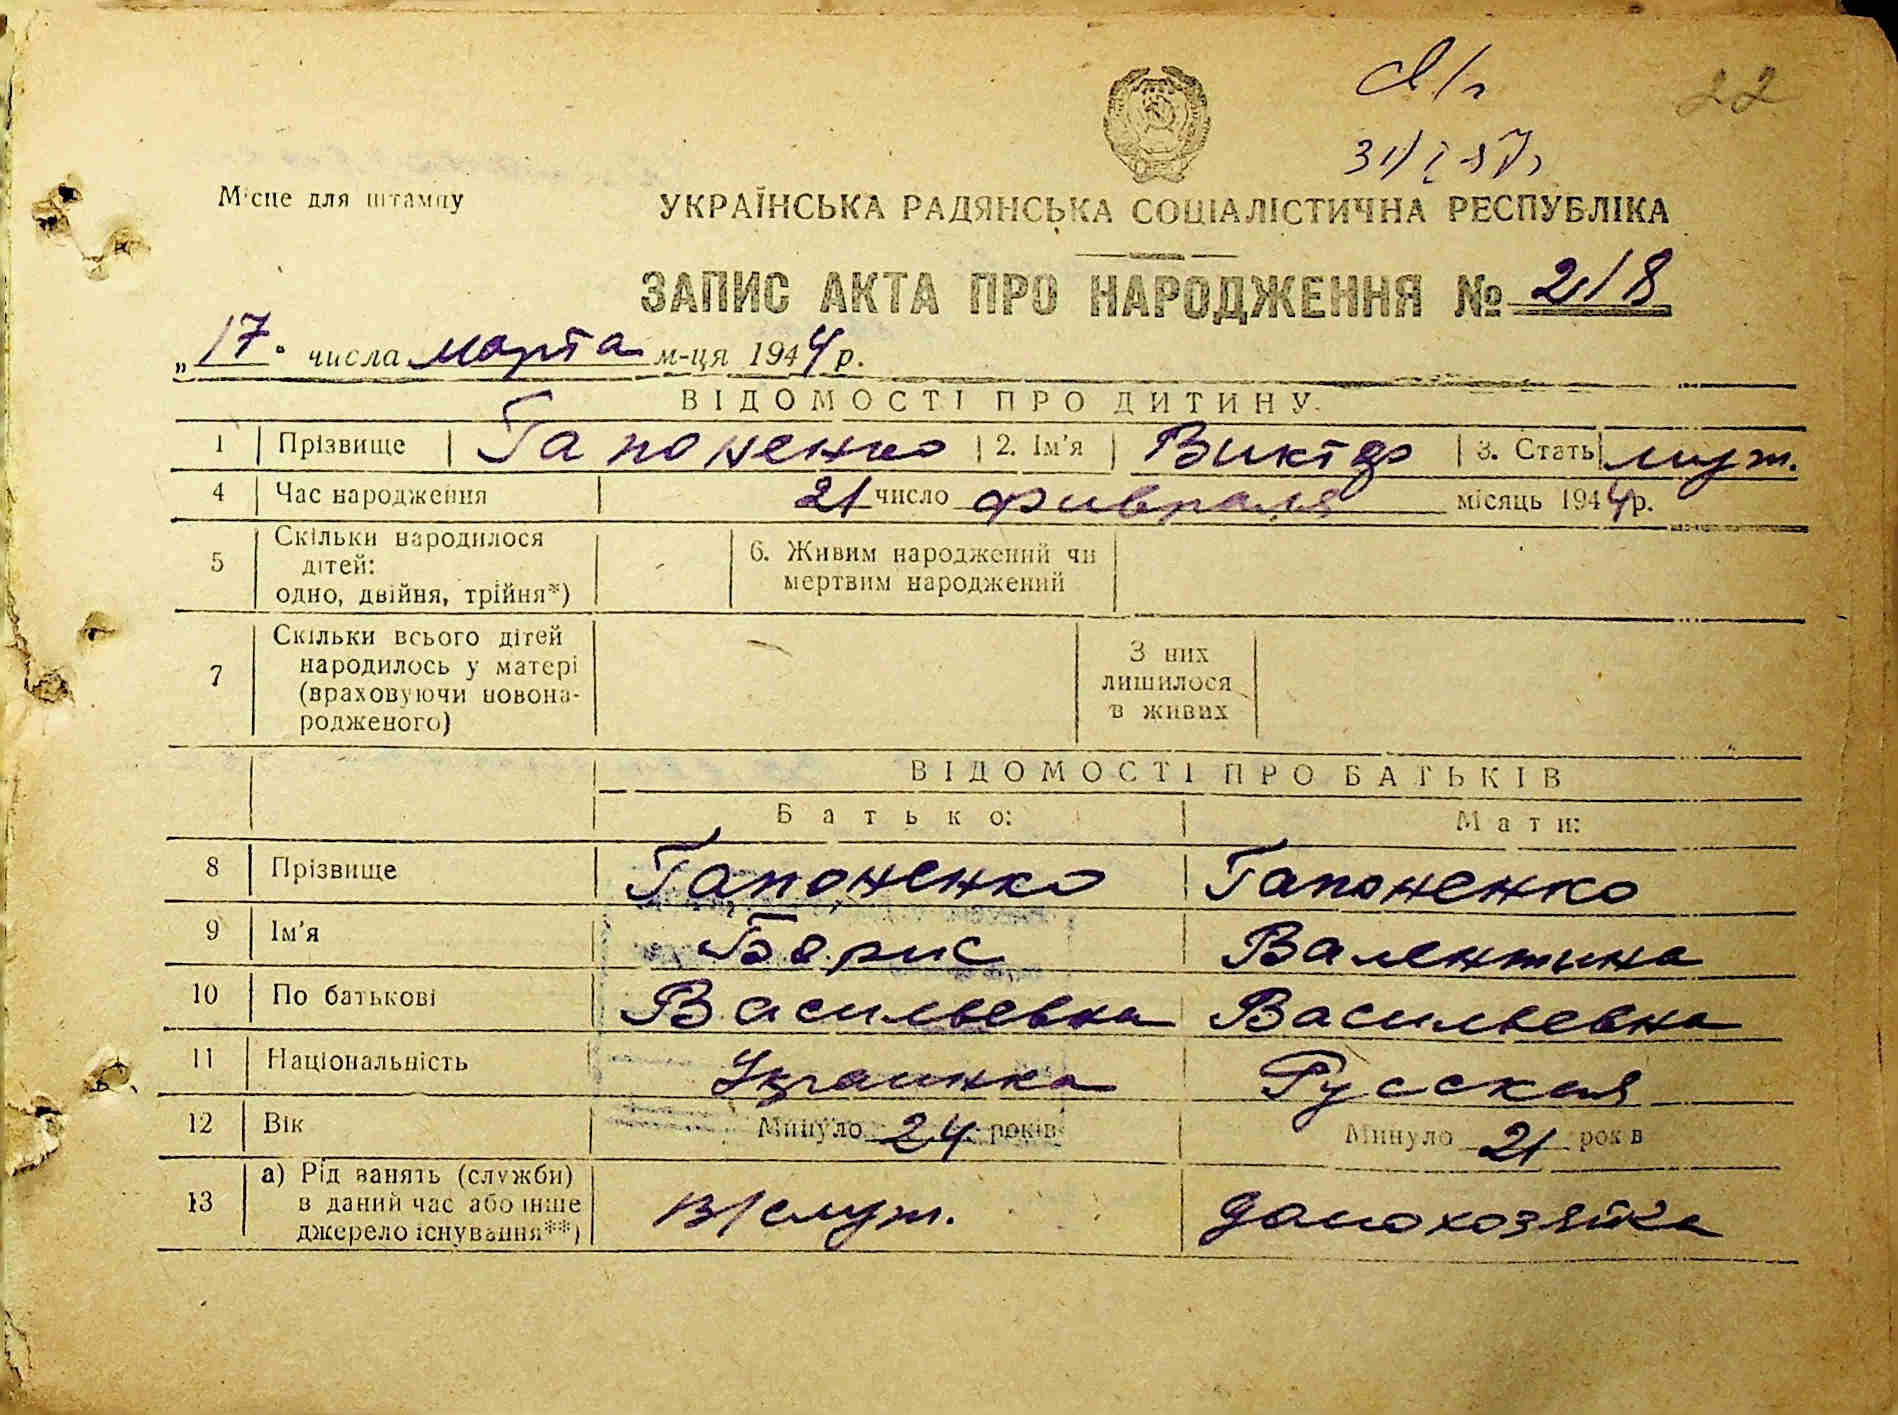 22
Місце для штампу
УКРАЇНСЬКА РАДЯНСЬКА СОЦІАЛІСТИЧНА РЕСПУБЛІКА
ЗАПИС АКТА ПРО НАРОДЖЕННЯ № 218
„17" числа марта м-ця 1944 р.
ВІДОМОСТІ ПРО ДИТИНУ
1 Прізвище Гапоненко 2. Ім'я Виктор 3. Стать муж.
4 Час народження 21 число февраля місяць 1944 р.
5 Скільки народилося
дітей:
одно, двійня, трійня*)
6. Живим народжений чи
мертвим народжений
7 Скільки всього дітей
народилось у матері
(враховуючи новона-
родженого)
З них
лишилося
в живих
ВІДОМОСТІ ПРО БАТЬКІВ
Батько: Мати:
8 Прізвище Гапоненко Гапоненко
9 Ім'я Борис Валентина
10 По батькові Васильевна Васильевна
11 Національність Украинка Русская
12 Вік Минуло 24 років Минуло 21 років
13 а) Рід занять (служби)
в даний час або інше
джерело існування**)
в/служ. домохозяйка